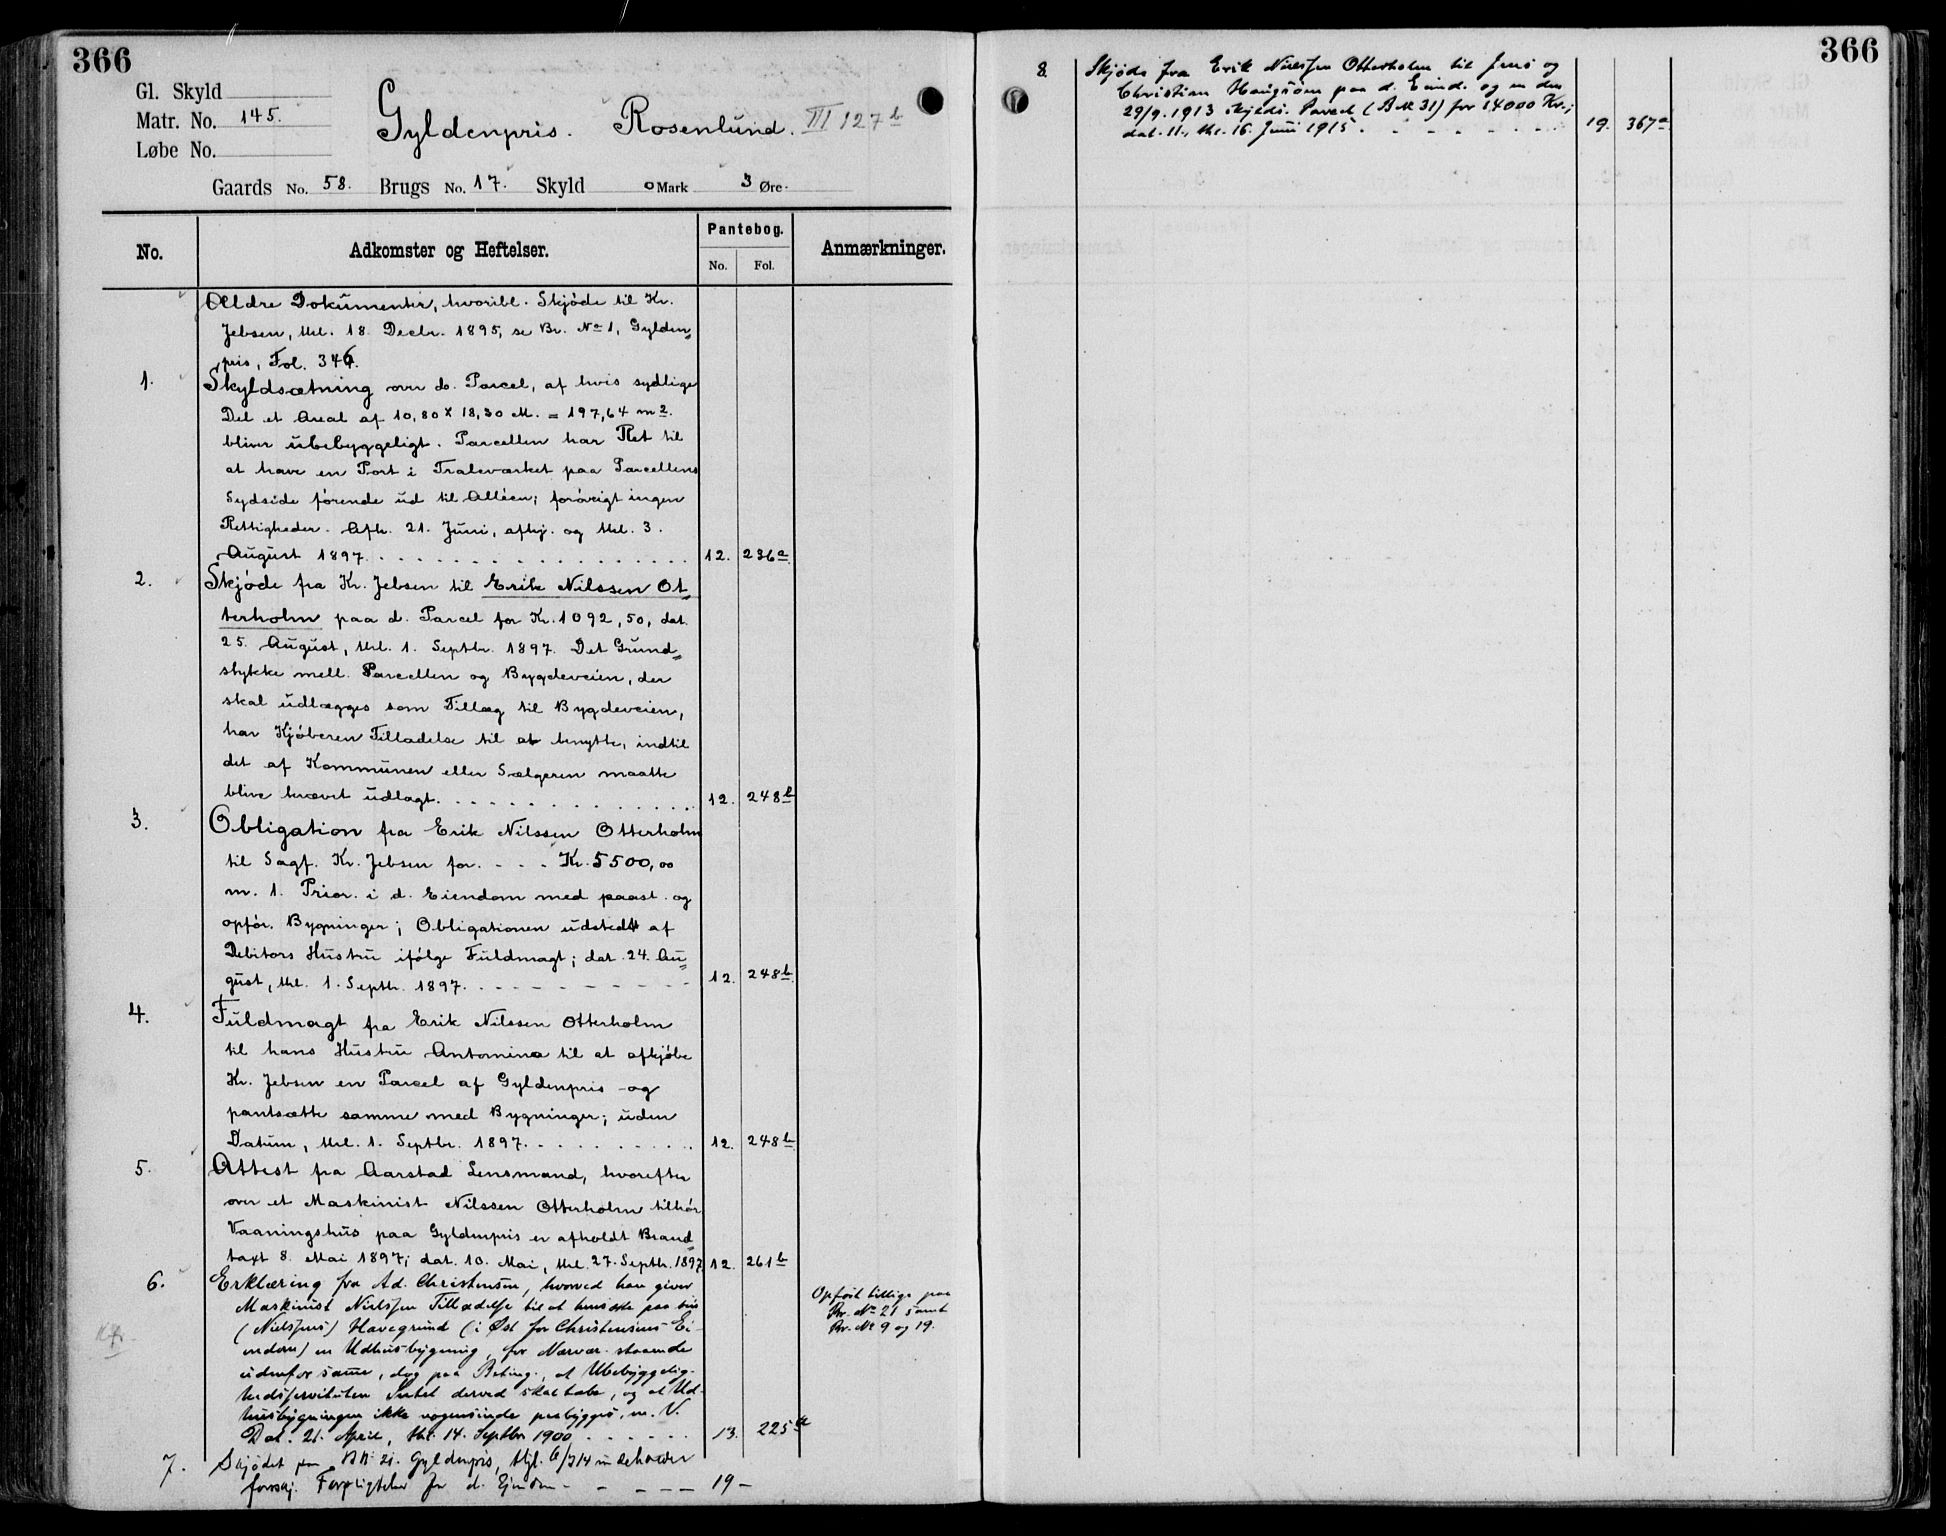 366
Gl. Skyld
Matr. No. 145.
Løbe No.
Gyldenpris. Rosenlund. III 127 b
Gaards No. 58. Brugs No. 17. Skyld 0 Mark 3 Øre.
No. Adkomster og Heftelser. Pantebog. Anmærkninger.
No. Fol.
Ældre Dokumenter, hvoribl. Skjøde til Kr.
Jebsen, thl. 18. Decbr. 1895, se Br. No 1, Gylden„
pris, Fol. 346.
1. Skyldsætning over do. Parcel, af hvis sydlige
Del et Areal af 10,80 x 18,30 M. = 197,64 m2.
bliver ubebyggeligt. Parcellen har Ret til
at have en Port i Traleværket paa Parcellens
Sydside førende ud til Alléen; forøvrigt ingen
Rettigheder. Afh. 21. Juni, afhj. og thl. 3.
August 1897. 12. 236a
2. Skjøde fra Kr. Jebsen til Erik Nilssen Ot„
terholm paa d. Parcel for Kr. 1092,50, dat.
25. August, thl. 1. Septbr. 1897. Det Grund„
stykke mell. Parcellen og Bygdeveien, der
skal udlægges som Tillæg til Bygdeveien,
har Kjøberen Tilladelse til at benytte, indtil
det af Kommunen eller Sælgeren maatte
blive krævet udlagt. 12. 248b
3. Obligation fra Erik Nilssen Otterholm
til Sagf. Kr. Jebsen for. - - - Kr. 5500,00
m. 1. Prior. i d. Eiendom med paast. og
opfør. Bygninger; Obligationen udstedt af
Debitors Hustru ifølge Fuldmagt; dat. 24. Au„
gust, thl. 1. Septbr. 1897. 12. 248b
4. Fuldmagt fra Erik Nilssen Otterholm
til hans Hustru Antomina til at afkjøbe
Kr. Jebsen en Parcel af Gyldenpris og
pantsætte samme med Bygninger; uden
Datum, thl. 1. Septbr. 1897. 12. 248b
5. Attest fra Aarstad Lensmand, hvorefter
over et Maskinist Nilssen Otterholm tilhør.
Vaaningshus paa Gyldenpris er afholdt Brand„
taxt 8. Mai 1897; dat. 10. Mai, thl. 27. Septbr. 1897 12. 261b
6. Erklæring fra Ad. Christensen, hvorved han giver
Maskinist Nielssen Tilladelse til at hensætte paa sin
(Nielssens) Havegrund (i Øst for Christensens Ei-
endom) en Udhusbygning, for Nærvær. staaende
udenfor samme, dog paa Beting., at Ubebyggelig-
hedsservituten Intet derved skal tabe, og at Ud-
husbygningen ikke nogensinde paabygges, m. V.
Dat. 21. April, thl. 14. Septbr 1900 13. 225a
Opført tillige paa
Br. No 21 samt
Br. No 9 og 19.
7. Skjødet paa BN: 21. Gyldenpris, tgl. 6/7 14 indeholder
forskj. Forpligtelser for d. Ejendom 19 -
366
8. Skjøde fra Erik Nielssen Otterholm til Jens og
Christian Haugsøen paa d. Eiend. og en den
29/9. 1913 skylds. Parcel (B.N 31) for 14000 Kr.;
dat. 11., thl. 16. Juni 1915. 19. 367a